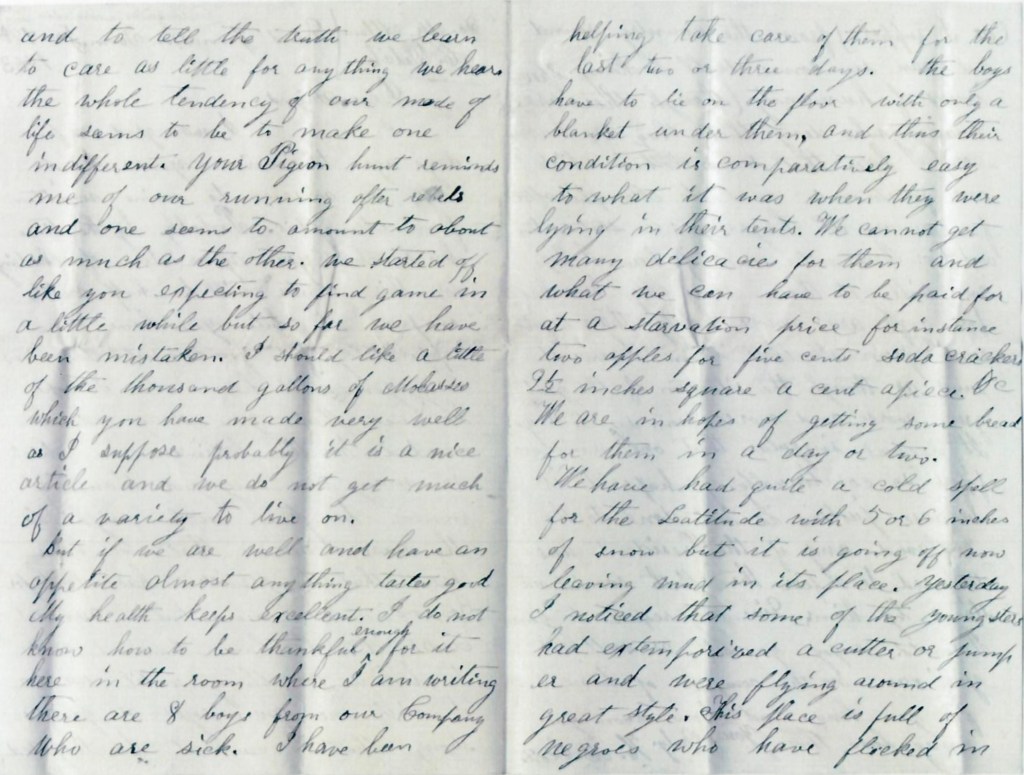 and to tell the truth we learn
to care as little for any thing we hear
the whole tendency of our mode of
life seems to be to make one
indifferent. Your Pigeon hunt reminds
me of our running after rebels
and one seems to amount to about
as much as the other. we started off
like you expecting to find game in
a little while but so far we have
been mistaken. I should like a little
of the thousand gallons of Molasses
which you have made very well
as I suppose probably it is a nice
article and we do not get much
of a variety to live on.
But if we are well and have an
appetite almost any thing tastes good
My health keeps excellent. I do not
know how to be thankful enough for it
here in the room where I am writing
there are 8 boys from our Company
who are sick. I have been
helping take care of them for the
last two or three days. the boys
have to lie on the floor with only a
blanket under them, and thus their
condition is comparatively easy
to what it was when they were
lying in their tents. We cannot get
many delicacies for them and
what we can have to be paid for
at a starvation price for instance
two apples for five cents soda crackers
2½ inches square a cent apiece. &c
We are in hopes of getting some bread
for them in a day or two.
We have had quite a cold spell
for the Latitude with 5 or 6 inches
of snow but it is going off now
leaving mud in its place. Yesterday
I noticed that some of the youngsters
had extemporized a cutter or jump
er and were flying around in
great style. This place is full of
negroes who have flocked in